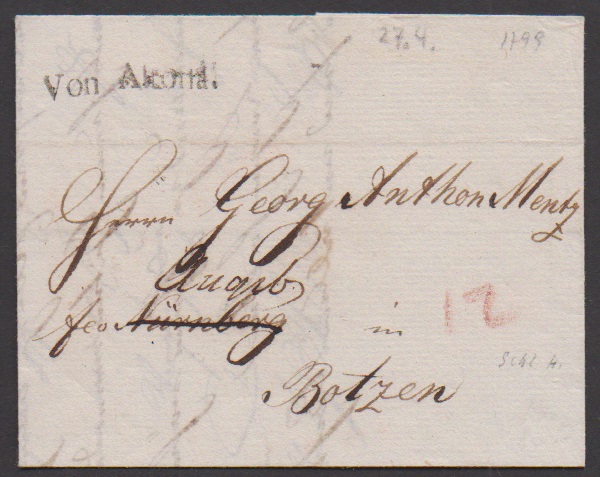 27.4. 1799
Von Altona.
Herrn Georg Anthon Mentz
Augsb
fco Nürnberg
in
12
Botzen